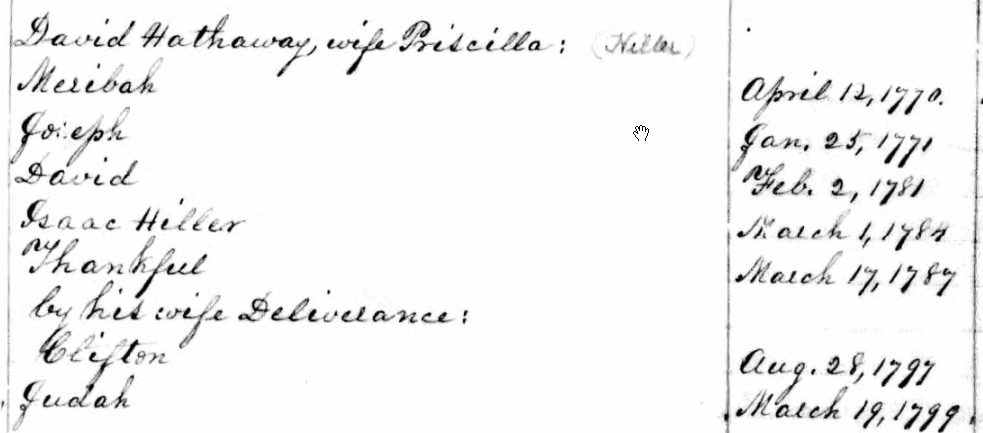 David Hathaway, wife Priscilla: (Hiller)
Meribah April 12, 1770.
Joseph Jan. 25, 1771
David Feb. 2, 1781
Isaac Hiller March 1, 1784
Thankful March 17, 1787
by his wife Deliverance:
Clifton Aug. 28, 1797
Judah March 19, 1799.